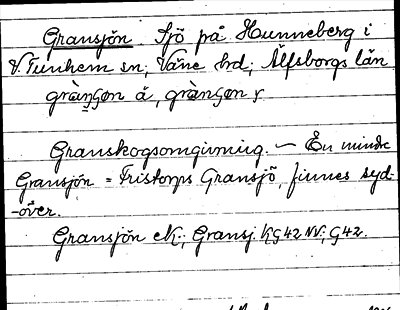 Gransjön. Sjö på Hunneberg i
V. Tunhem sn; Väne hd; Älfsborgs län
grànʂọn å, grànʂọn y
Granskogsomgivning. — En mindre
Gransjön = Fristorps Gransjö, finnes syd-
-över.
Gransjön eK.; Gransj. KG42 NV; G42.